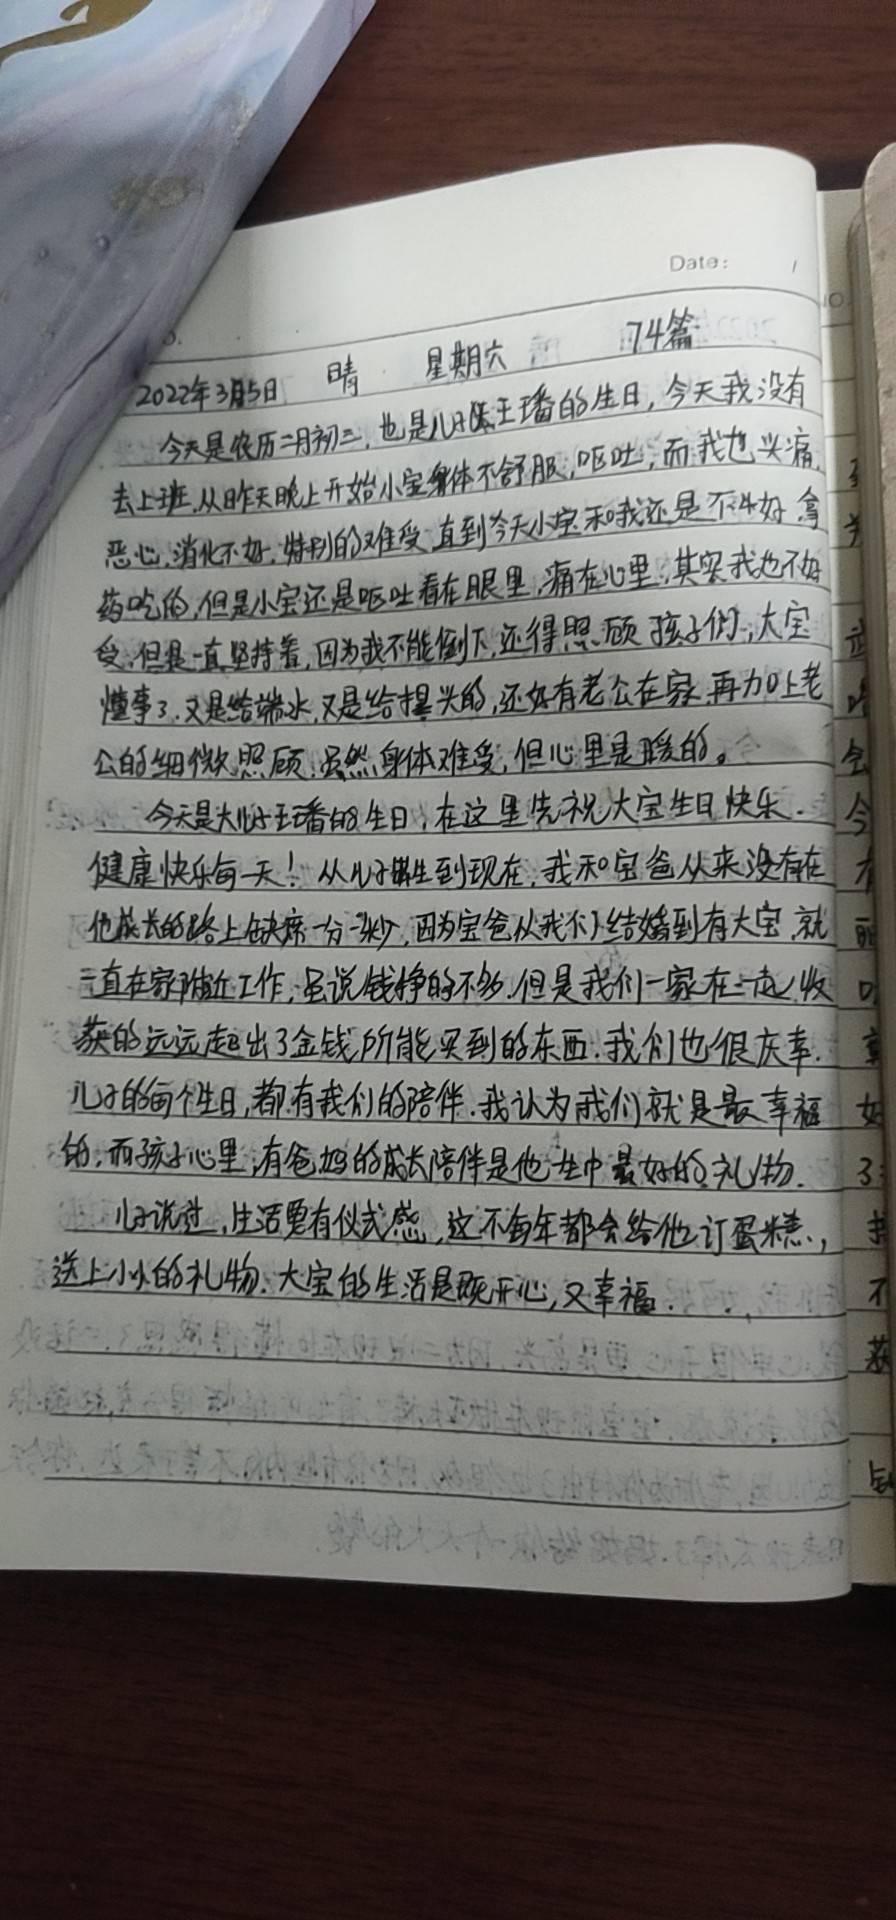 Date:
74篇
2022年3月5日 晴 星期六
今天是农历二月初三,也是儿子王璠的生日,今天我没有
去上班.从昨天晚上开始小宝身体不舒服,呕吐,而我也头痛,
恶心,消化不好,特别的难受,直到今天小宝和我还是不太好,拿
药吃的,但是小宝还是呕吐看在眼里,痛在心里,其实我也不好
受,但是一直坚持着,因为我不能倒下,还得照顾孩子们,大宝
懂事了.又是给端水,又是给揉头的,还好有老公在家,再加上老
公的细微照顾,虽然身体难受,但心里是暖的。
今天是大儿子王璠的生日,在这里先祝大宝生日快乐.
健康快乐每一天!从儿子出生到现在,我和宝爸从来没有在
他成长的路上缺席一分一秒,因为宝爸从我们结婚到有大宝,就
一直在家附近工作,虽说钱挣的不多.但是我们一家在一起,收
获的远远超出了金钱所能买到的东西.我们也很庆幸.
儿子的每个生日,都有我们的陪伴.我认为我们就是最幸福
的,而孩子心里,有爸妈的成长陪伴是他一生中最好的礼物.
儿子说过,生活要有仪式感,这不每年都会给他订蛋糕,
送上小小的礼物.大宝的生活是既开心,又幸福.